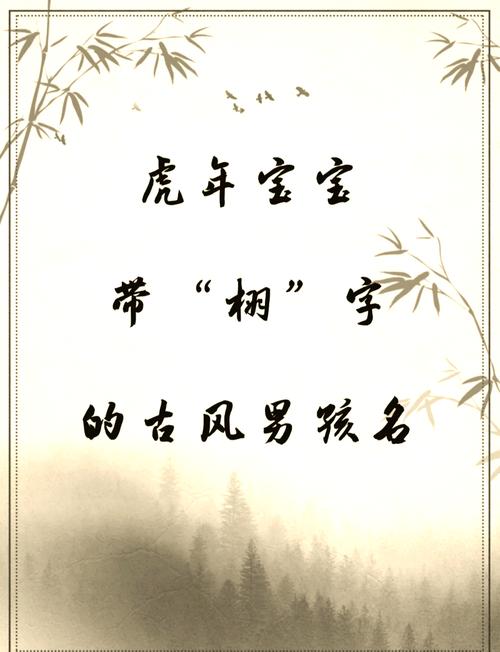 虎年宝宝
带“栩”字
的古风男孩名